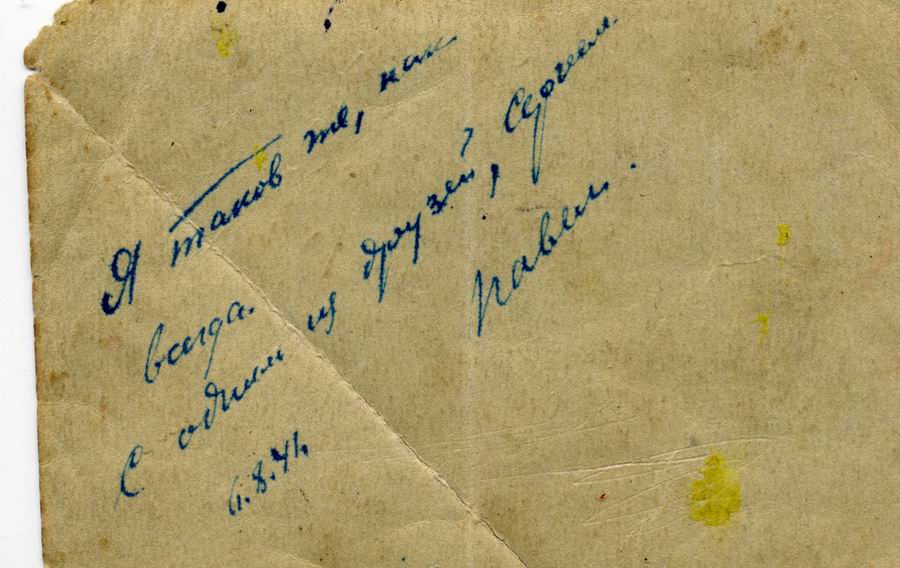 Я таков же, как
всегда.
С одним из друзей, Сергеем.
Павел.
6.8.41.